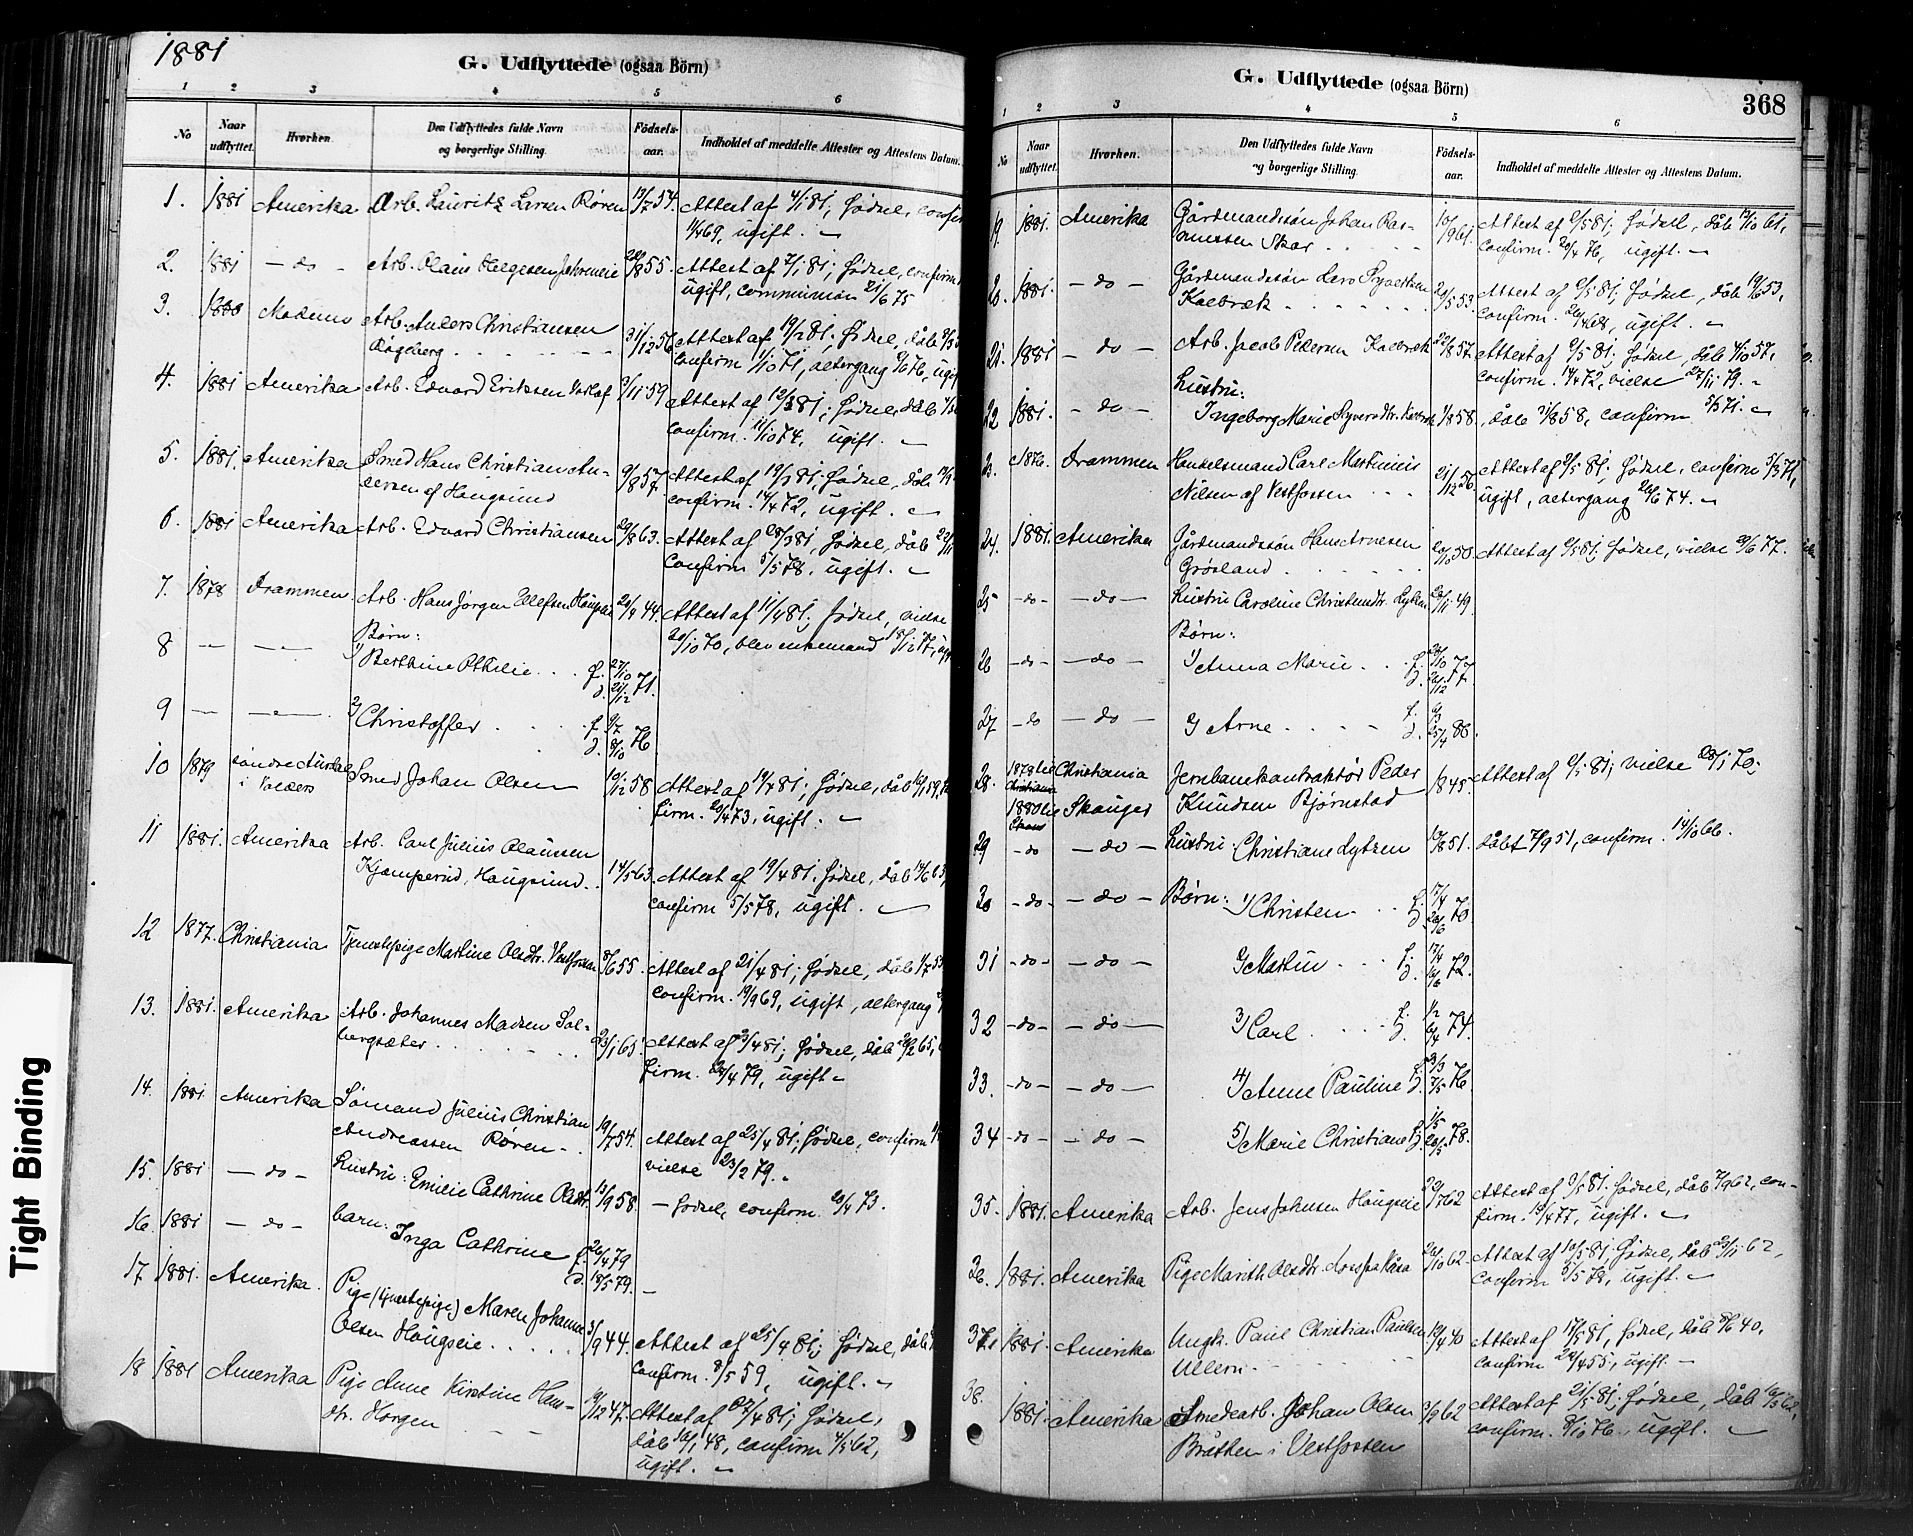 1881
G. Udflyttede (ogsaa Börn)
1 2 3 4 5 6
No
Naar udflyttet.
Hvorhen.
Den Udflyttedes fulde Navn og borgerlige Stilling.
Födsels-aar.
Indholdet af meddelte Attester og Attestens Datum.
1. 1881 Amerika Arb. Lauritz Larsen Røren 17/7 54. Attest af 4/1 81, fødsel, confir
69, ugift.
2. 1881 – do – Arb. Olaus Helgesen 8 55. Attest af 7/1 81; fødsel, confirm
ugift, communion 21/6 75
3. Modums Arb. Anders Christiansen
31/12 56 Attest af 19/2 81; fødsel, dåb
confirm 1/10 71, altergang 76, ugif
4. 1881 Amerika Arb. Edvard Eriksen 3/11 59 Attest af 12/3 81; fødsel, dåb
confirm. 11/10 74, ugift.
5. 1881. Amerika Smed Hans Christian An-
dersen af Hougsund 9/8 57. Attest af 19/3 81; fødsel, dåb
confirm. 14/4 72, ugift.
6. 1881 Amerika Arb. Edvard Christiansen 29/8 63. Attest af 28/3 81, fødsel, dåb 22/11
confirm 5/5 78, ugift.
7. 1878 Drammen Arb. Hans Jørgen Ellefsen 20/9 44. Attest af 11/4 81; fødsel, vielse
20/10 70, blev enkemand 18/12 77,
Børn:
8 – – 1) Berthine Othilie . . f. 27/10
d. 21/12 71.
9 – – 2) Christoffer . . f. 9/7
d. 8/10 76
10 1879 søndre Aurdal
i Valders Smed Johan Olsen 10/12 58 Attest af 19/4 81; fødsel, dåb 16/1 59,
firm. 20/4 73, ugift.
11 1881. Amerika Arb. Carl Julius Olaussen
Kjamperud, Hougsund. 14/5 63. Attest af 19/4 81; fødsel, dåb 14/6 63,
confirm 5/5 78, ugift.
12 1877. Christiania Tjenestepige Martine Olsdtr. Vestfossen 8/6 55. Attest af 21/4 81; fødsel, dåb 1/7 55
confirm. 19/9 69, ugift, altergang
13. 1881. Amerika Arb. Johannes Madsen Sol-
bergsæter 23/1 65. Attest af 23/4 81; fødsel, dåb 26/2 65,
firm. 23/4 79, ugift
14. 1881. Amerika Sömand Julius Christian
Andreassen Røren 19/7 54. Attest af 25/4 81; fødsel, confirm
vielse 23/2 79.
15. 1881 – do – Hustru: Emilie Cathrine Olsdtr. 13/9 58. – fødsel, confirm. 20/4 73.
16. 1881 – do – barn: Inga Cathrine f. 26/4 79
d. 18/5 79.
17 1881. Amerika. Pige (tjenestepige) Maren Johanne
Olsen Hougseie 3/9 44. Attest af 25/4 81; fødsel, dåb
confirm. 8/5 59, ugift.
18 1881 Amerika Pige Anne Kirstine Hans-
dtr. Horgen 19/12 47. Attest af 27/4 81; fødsel,
dåb 16/1 48, confirm 4/5 62,
ugift.
G. Udflyttede (ogsaa Börn)
368
1 2 3 4 5 6
No
Naar udflyttet.
Hvorhen.
Den Udflyttedes fulde Navn og borgerlige Stilling.
Födsels-aar.
Indholdet af meddelte Attester og Attestens Datum.
19. 1881. Amerika Gårdmandssøn Johan Ras-
mussen Skar 10/9 61. Attest af 2/5 81; fødsel, dåb 13/10 61,
confirm. 20/4 76, ugift.
20. 1881. – do – Gårdmandssøn Lars
Kolbræk 20/5 53. Attest af 2/5 81; fødsel, dåb 19/6 53,
confirm. 26/4 68, ugift.
21. 1881 – do – Arb. Jacob Pedersen Kolbræk 22/8 57. Attest af 2/5 81; fødsel, dåb 4/10 57,
confirm. 14/4 72, vielse 27/11 79.
Hustru:
22 1881. – do – Ingeborg Marie 1/8 58. , dåb 58, confirm 5/3 71.
23. 1876. Drammen Handelsmand Carl Martinius
Nilsen af Vestfossen 21/12 56. Attest af 2/5 81; fødsel, confirm 5/3 71,
ugift, altergang 20/6 74.
24. 1881. Amerika Gårdmandssøn Hans Arnesen
Grøsland 20/10 50. Attest af 2/5 81; fødsel, vielse 29/6 77.
25 – do – – do – Hustru Caroline Christensdtr. 20/11 49.
Børn:
26 – do – – do – 1) Anna Marie . . f. 20/10
d. 26/12 77.
27 – do – – do – 2) Arne f. 9/3
d. 25/4 80.
28. 1878 til Christiania Jernbanekontraktør Peder
1880 til Skauger Knudsen Bjørnstad 1/8 45. Attest af 2/5 81; vielse 28/1 70.
29 – do – do – Hustru: Christiane Lytzen 10/8 51. dåbt 7/9 51, confirm. 14/10 66.
30 – do – – do – Børn: 1) Christen f. 17/4
d. 26/6 70.
31 – do – – do – 2) Martin f. 17/4
d. 16/6 72.
32 – do – – do – 3) Carl f. 1/2
d. 6/4 74.
33. – do – – do – 4) Anne Pauline f. 23/3
d. 7/5 76.
34 – do – – do – 5) Marie Christiane f. 1/5
d. 20/5 78.
35. 1881. Amerika Arb. Jens Johnsen Hougseie 29/7 62 Attest af 9/5 81. fødsel, dåb 7/9 62, con-
firm. 19/4 77, ugift.
36. 1881. Amerika Pige Marith Olsdtr. 26/10 62. Attest af 10/5 81; fødsel, dåb 23/11 62,
confirm 5/5 78, ugift.
37. 1881. Amerika Ungk. Paul Christian Paulsen
Ullern 19/4 40 Attest af 17/5 81, fødsel, dåb 8/6 40,
confirm 22/4 55, ugift.
38. 1881. Amerika Smedearb. Johan Olsen
Bråthen i Vestfossen 3/3 62 Attest af 21/5 81; fødsel, dåb 62,
confirm. 8/10 76, ugift.
Tight Binding